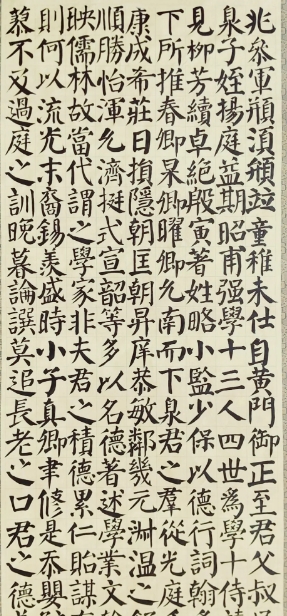 兆叅軍頵湏頲並童稚未仕自黄門御正至君父叔
泉子姪揚庭益期昭甫强學十三人四世為學士侍
見柳芳續卓絕殷寅著姓略小監少保以德行詞翰
下所推春卿杲卿曜卿允南而下泉君之羣從光庭
康成希莊日損隱朝匡朝昇庠恭敏鄰幾元淑温之
順勝怡渾允濟挺式宣韶等多以名德著述學業文
映儒林故當代謂之學家非夫君之積德累仁貽謀
則何以流光末裔錫羡盛時小子真卿聿脩是忝嬰
慕不及過庭之訓晚暮論譔莫追長老之口君之德